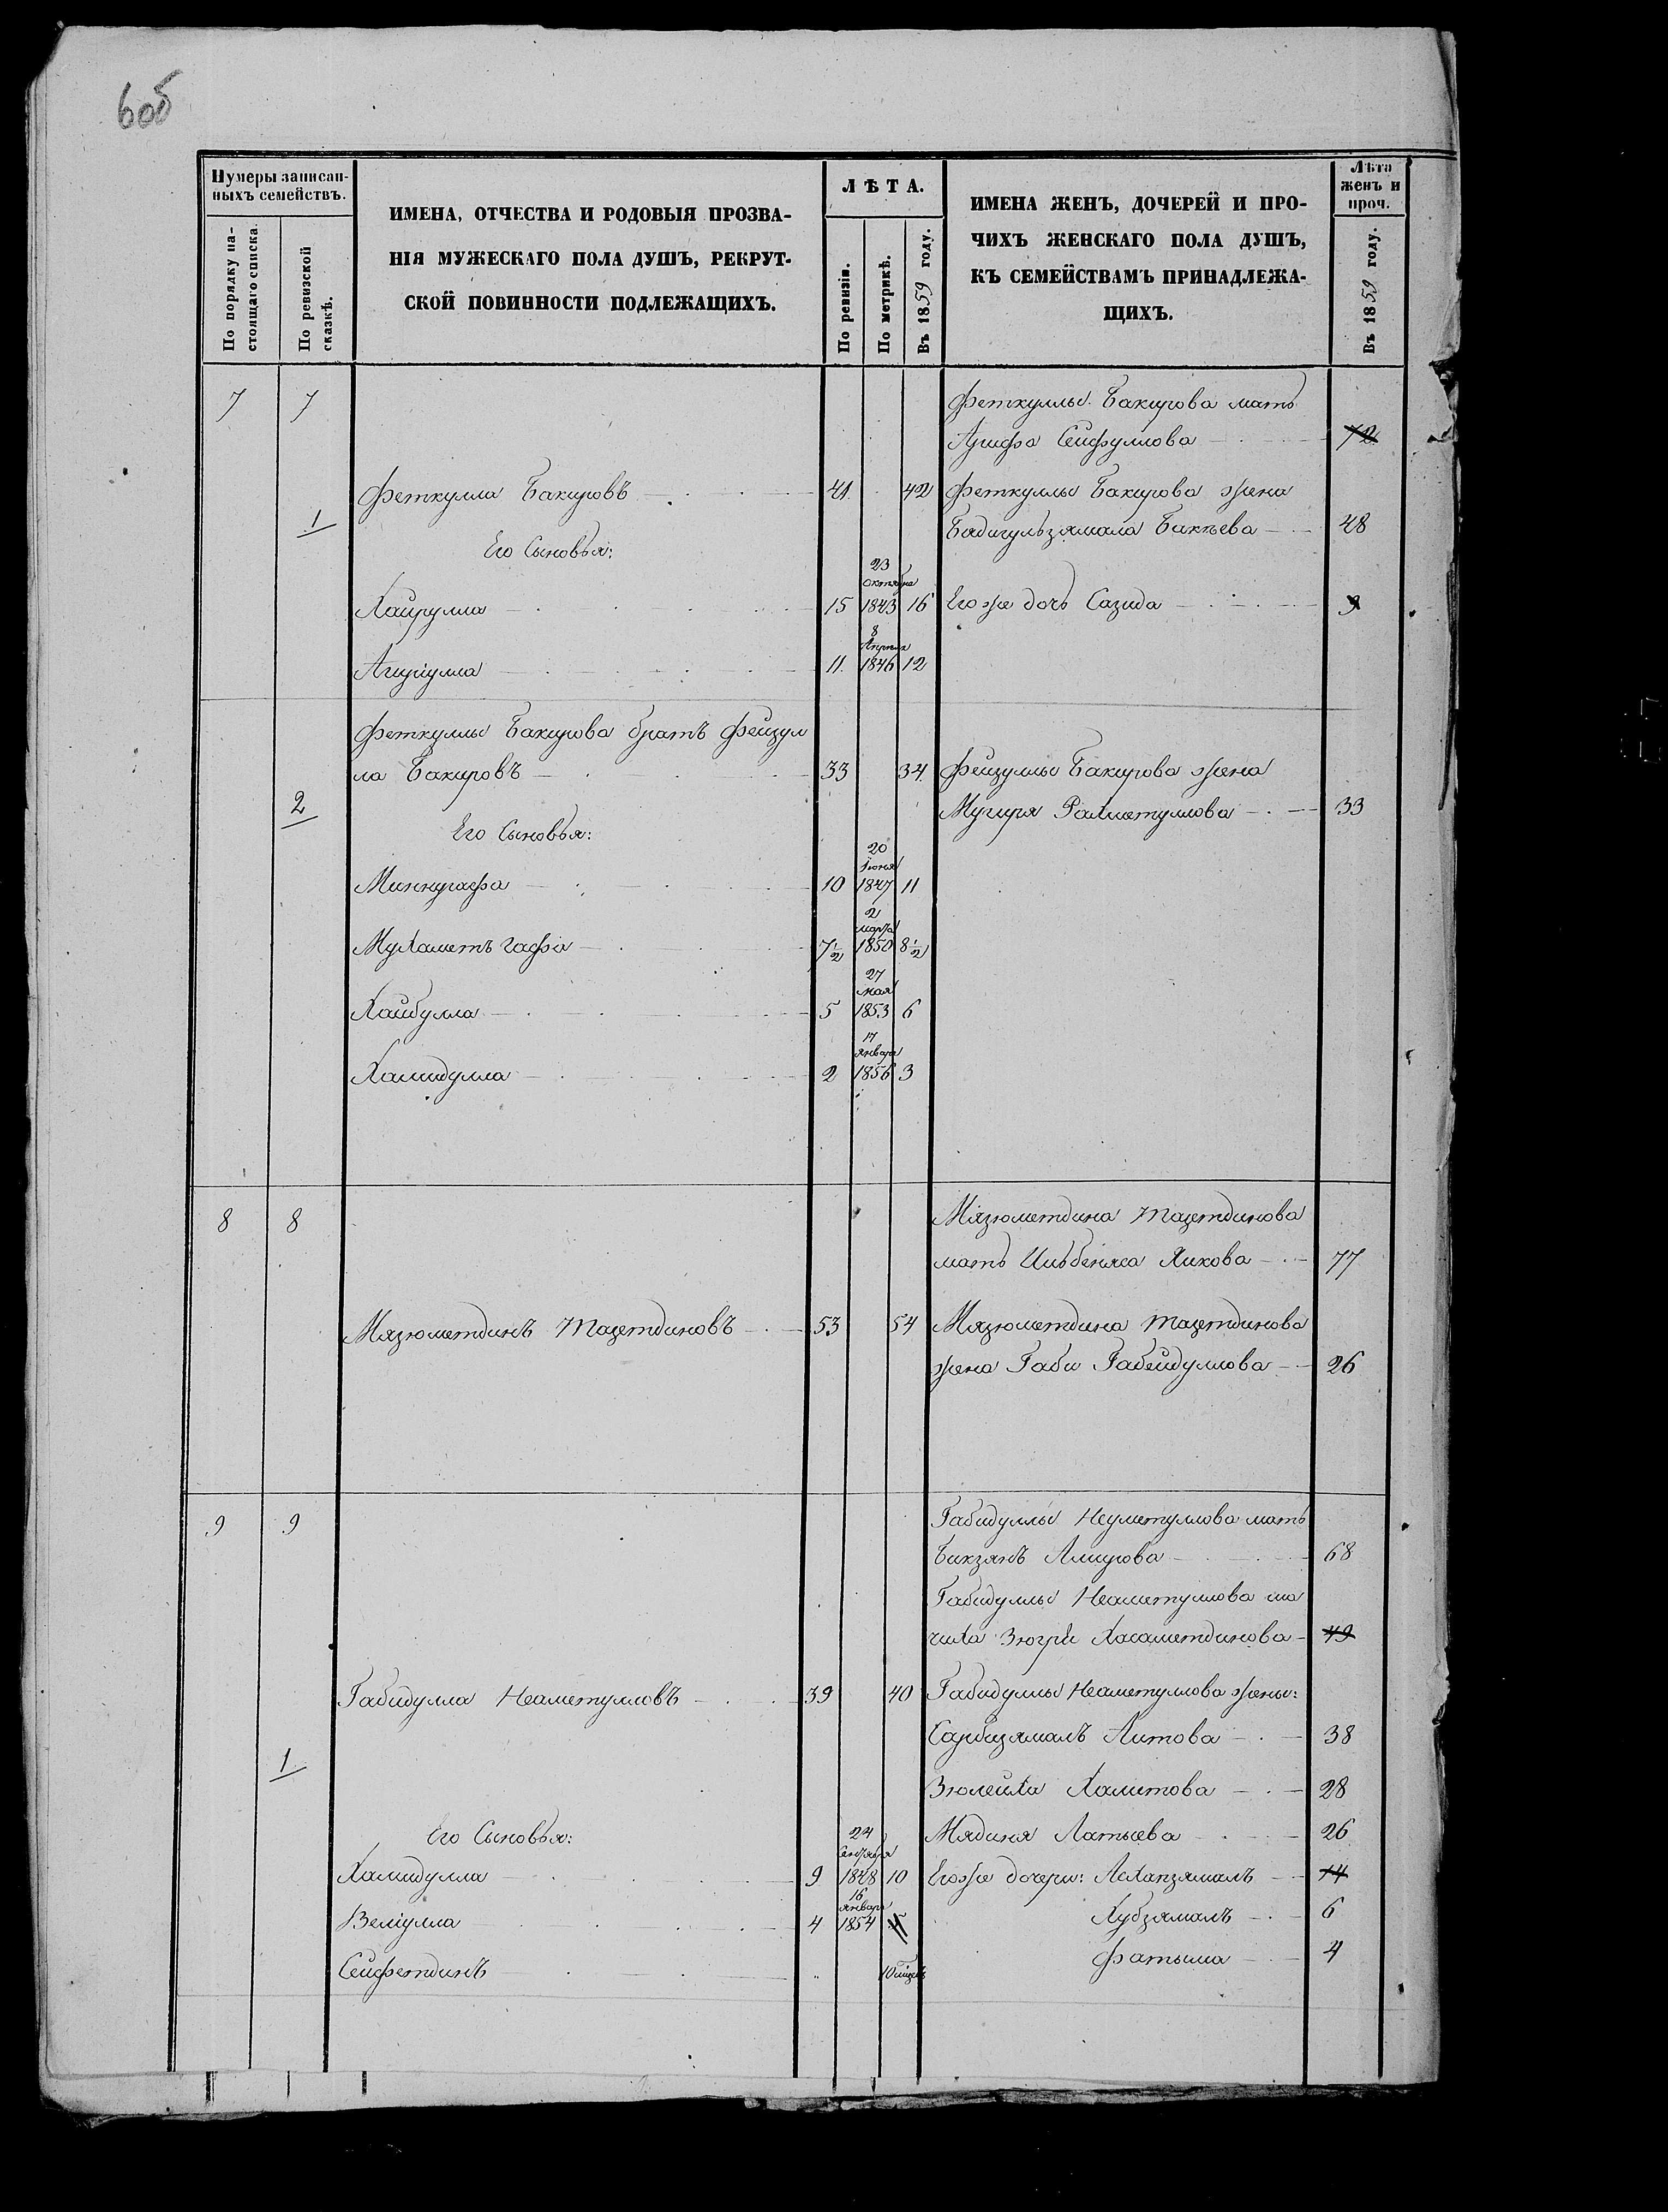 606
Нумеры записан-
ныхъ семействъ.
По порядку на-
стоящаго списка.
По ревизской
сказкѣ.
ИМЕНА, ОТЧЕСТВА И РОДОВЫЯ ПРОЗВА-
НІЯ МУЖЕСКАГО ПОЛА ДУШЪ, РЕКРУТ-
СКОЙ ПОВИННОСТИ ПОДЛЕЖАЩИХЪ.
ЛѢТА.
По ревизіи.
По метрикѣ.
Въ 1859 году.
ИМЕНА ЖЕНЪ, ДОЧЕРЕЙ И ПРО-
ЧИХЪ ЖЕНСКАГО ПОЛА ДУШЪ,
КЪ СЕМЕЙСТВАМЪ ПРИНАДЛЕЖА-
ЩИХЪ.
Лѣта
женъ и
проч.
Въ 1859 году.
7 7 Феткуллы Бакирова мать
Арифа Сейфуллова 72
Феткулла Бакировъ 41 42 Феткуллы Бакирова жена
1 Бадигульзямала Бикѣева 48
Его Сыновья:
23
октября
Хайрулла 15 1843 16 Его же дочь Сагида 9
8
Апреля
11 1846 12
Феткуллы Бакирова братъ Фейзул
ла Бакировъ 33 34 Фейзуллы Бакирова жена
2 Мугиря Рахметуллова 33
Его Сыновья:
20
Іюня
Миннигафа 10 1847 11
2
марта
Мухаметъ Гафа 7½ 1850 8½
27
Мая
Хайбулла 5 1853 6
17
января
Хамидулла 2 1856 3
8 8 Мязюметдина Тазетдинова
мать Ильбеняса Яикова 77
Мязюметдинъ Тазетдиновъ 53 54 Мязюметдина Тазетдинова
жена Габи Габейдуллова 26
9 9 Габидуллы Неуметуллова мать
Бикзянъ Амирова 68
Габидуллы Неаметуллова ма
чиха Зюгря Хасаметдинова 49
Габидулла Неаметулловъ 39 40 Габидуллы Неаметуллова жены:
Сарбизямалъ Аитова 38
1
Зюлейха Халитова 28
Его Сыновья: 24 Мядиня Латыева 26
Сентября
Хамидулла 9 1848 10 Его же дочери: Асхапзямалъ 14
16
января
Веліулла 4 1854 5 Хубзямалъ 6
Фатыма 4
Сейфетдинъ 10 мѣсяц